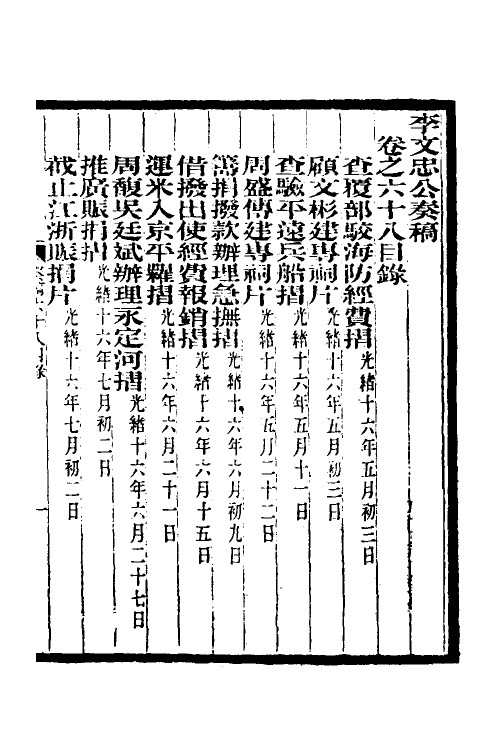 李文忠公奏稿
卷之六十八目錄
查覆部駁海防經費摺光緒十六年五月初三日
顧文彬建專祠片光緒十六年五月初三日
查驗平遠兵船摺光緒十六年五月十一日
周盛傳建專祠片光緒十六年五月二十二日
籌捐撥款辦理急撫摺光緒十六年六月初九日
借撥出使經費報銷摺光緒十六年六月十五日
運米入京平糶摺光緒十六年六月二十一日
周馥吳廷斌辦理永定河摺光緒十六年六月二十七日
推廣賑捐摺光緒十六年七月初二日
截止江浙賑捐片光緒十六年七月初二日